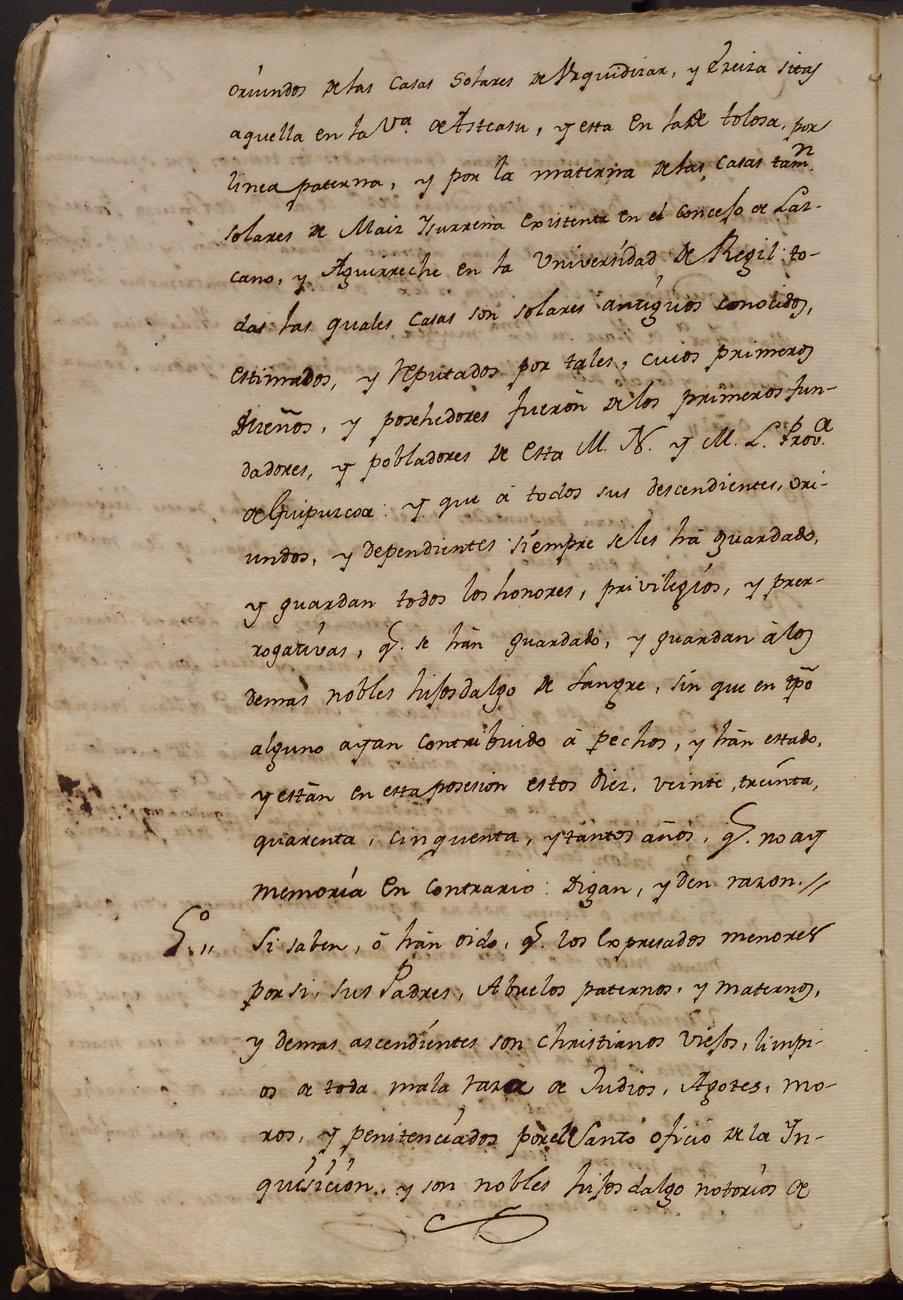 óriundos de las Casas Solares de Vrquidizar, y Ereiza sitas
aquella en la Va. de Asteasu, y esta en la de tolosa, por
linea paterna, y por la materna de las Casas tamn.
solares de Maiz Ysurrena existente en el Concejo de Laz-
cano, y Aguirreche en la Vniversidad de Regil: to-
das las quales Casas son solares antiguos conocidos,
estimados, y reputados por tales, cuios primeros
dueños, y posehedores fueron de los primeros fun-
dadores, y pobladores de esta M. N. y M. L. Prova.
de Guipuzcoa: y que á todos sus descendientes, ori-
undos, y dependientes siempre seles há guardado,
y guardan todos los honores, privilegios, y prer-
rogativas, q. se hán guardado, y guardan á los
demas nobles hijosdalgo de sangre, sin que en tpõ
alguno ayan contribuido á pechos, y hán estado,
y están en esta posesion estos diez, veinte, treinta,
quarenta, cinquenta, y tantos años, q. no ay
memoria en contrario: digan, y den razon.//
5.º,, Si saben, ó hán oido, q. los expresados menores
por si, sus Padres, Abuelos paternos, y maternos,
y demas ascendientes son christianos viejos, limpi-
os de toda mala raza de Judios, Agotes, mo-
ros, y penitenciados por el Santo oficio de la Yn-
quisicion, y son nobles hijosdalgo notorios de